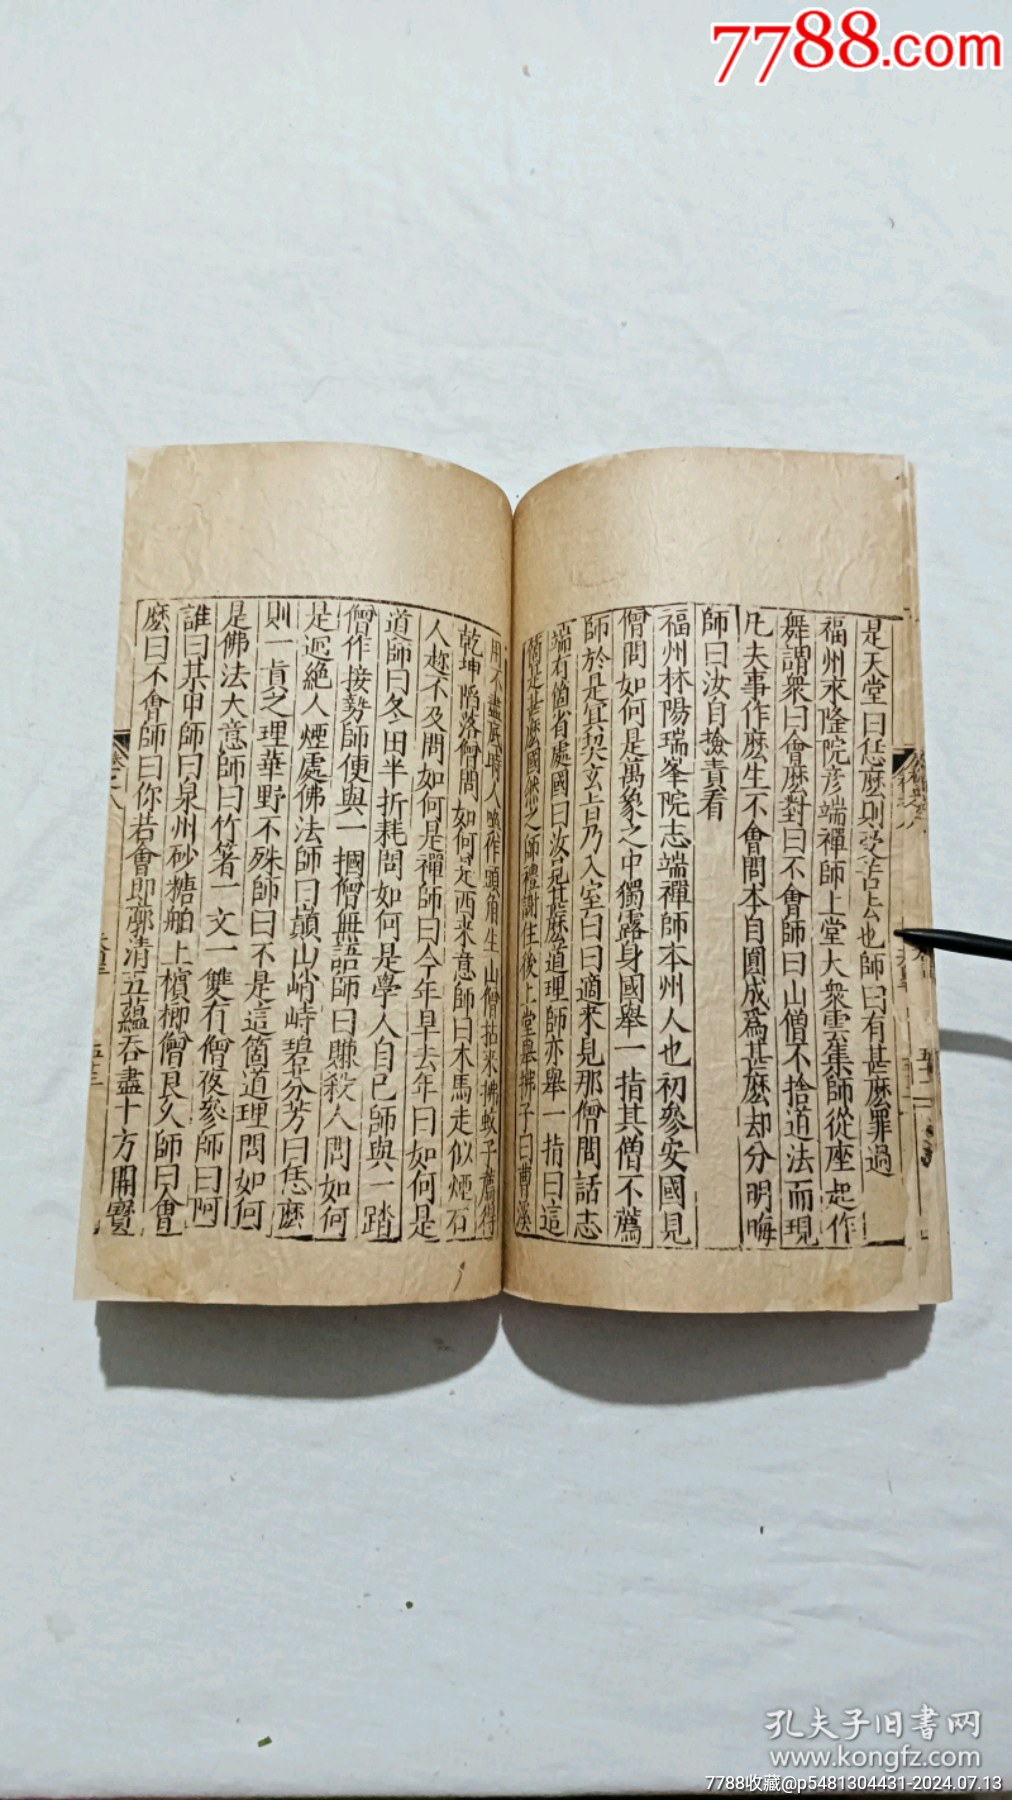 7788.com
是天堂曰恁麽則受苦去也師曰有甚麽罪過
福州來隆院彥端禪師上堂大衆雲集師從座起作
舞謂衆曰會麽對曰不會師曰山僧不捨道法而現
凡夫事作麽生不會問本自圓成爲甚麽却分明晦
師曰汝自撿責看
福州林陽瑞峯院志端禪師本州人也初參安國見
僧問如何是萬象之中獨露身國舉一指其僧不薦
師於是冥契玄旨乃入室白曰適來見那僧問話志
端有箇省處國曰汝見甚麽道理師亦舉一指曰這
箇是甚麽國然之師禮謝住後上堂舉拂子曰曹溪
用不盡底時人喚作頭角生山僧拈來拂蚊子薦得
乾坤陷落僧問如何是西來意師曰木馬走似煙石
人趂不及問如何是禪師曰今年早去年曰如何是
道師曰冬田半折耗問如何是學人自己師與一踏
僧作接勢師便與一摑僧無語師曰賺殺人問如何
是迥絶人煙處佛法師曰巔山峭峙碧芬芳曰恁麽
則一眞之理華野不殊師曰不是這箇道理問如何
是佛法大意師曰竹箸一文一雙有僧夜參師曰阿
誰曰某甲師曰泉州砂糖舶上檳榔僧良久師曰會
麽曰不會師曰你若會即廓清五蘊吞盡十方開寶
孔夫子旧書网
www.kongfz.com
7788收藏@p5481304431-2024.07.13